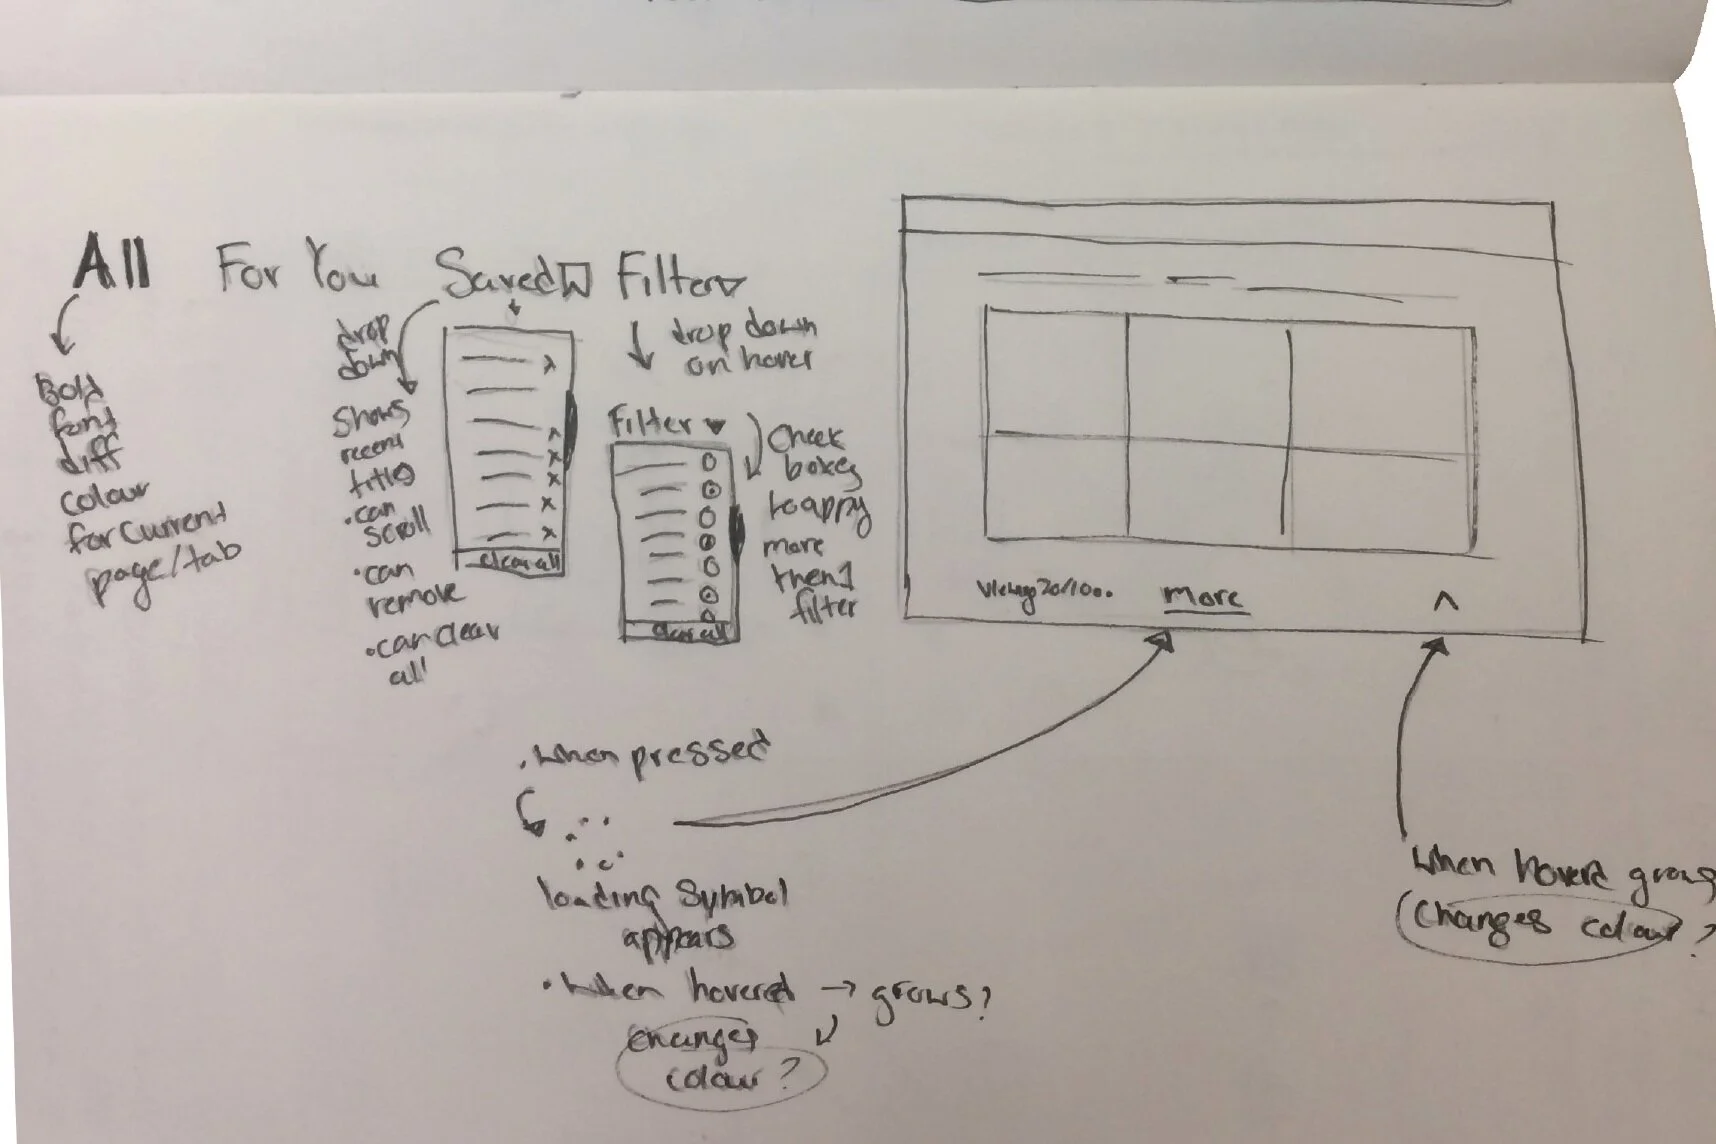 All For You Saved Filter
Bold
font
diff
colour
for current
page/tab
drop
down
Shows
recent
titles
• can
scroll
• can
remove
• can clear
all
clear all
drop down
on hover
Filter
Check
boxes
to appy
more
then 1
filter
clear all
Viewing 20/100..
more
^
. when pressed
loading symbol
appears
• when hovered → grows?
changes
colour?
when hovered grows
(changes colour?